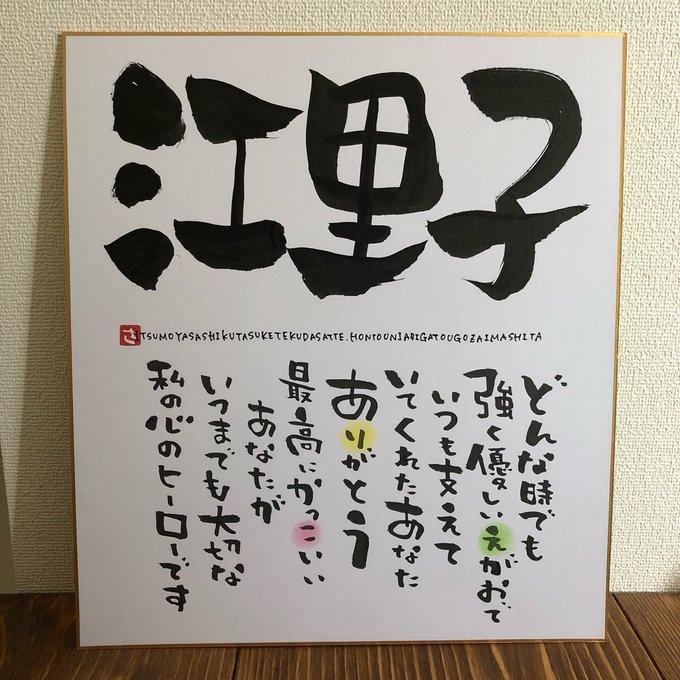 江里子
さ
ITSUMOYASASHIKUTASUKETEKUDASATTE.HONTOUNIARIGATOUGOZAIMASHITA
どんな時でも
強く優しいえがおで
いつも支えて
いてくれたあなた
ありがとう
最高にかっこいい
あなたが
いつまでも大切な
私の心のヒーローです